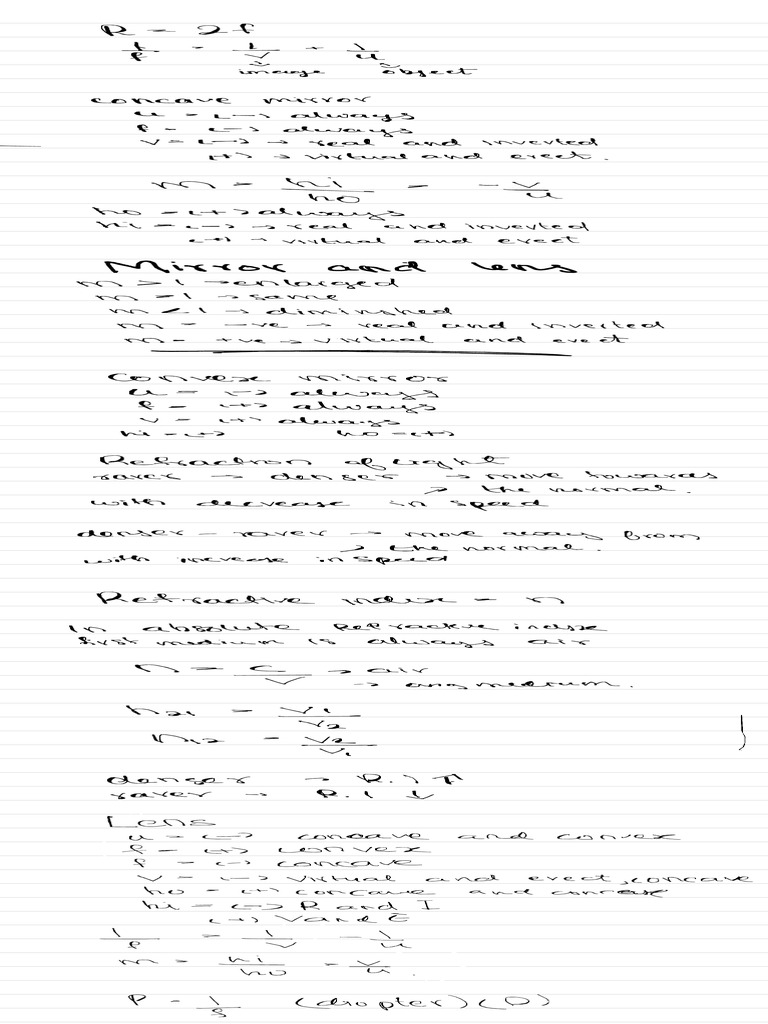 R = 2f
1/f = 1/v + 1/u
image object
concave mirror
u = (-) always
f = (-) always
v = (-) → real and inverted
(+) → virtual and erect.
m = hi/ho = -v/u
ho = (+) always
hi = (-) → real and inverted
(+) → virtual and erect
Mirror and lens
m > 1 → enlarged
m = 1 → same
m < 1 → diminshed
m = -ve → real and inverted
m = +ve → virtual and erect
Convex mirror
u = (-) always
f = (+) always
v = (+) always
hi = (+) ho = (+)
Refraction of light
rarer → denser → move towards
→ the normal.
with decrease in speed
denser - rarer → move away from
→ the normal.
with increase in speed
Refractive index = n
In absolute Refractive index
first medium is always air
n = c/v → air
→ any medium.
n21 = v1/v2
n12 = v2/v1
denser → R.I ↑
rarer → R.I ↓
Lens
u = (-) concave and convex
f = (+) convex
f = (-) concave
v = (-) virtual and erect, concave
ho = (+) concave and
hi = (-) R and I
(+) V and E
1/f = 1/v - 1/u
m = hi/ho = v/u.
P = 1/f (diopter) (D)